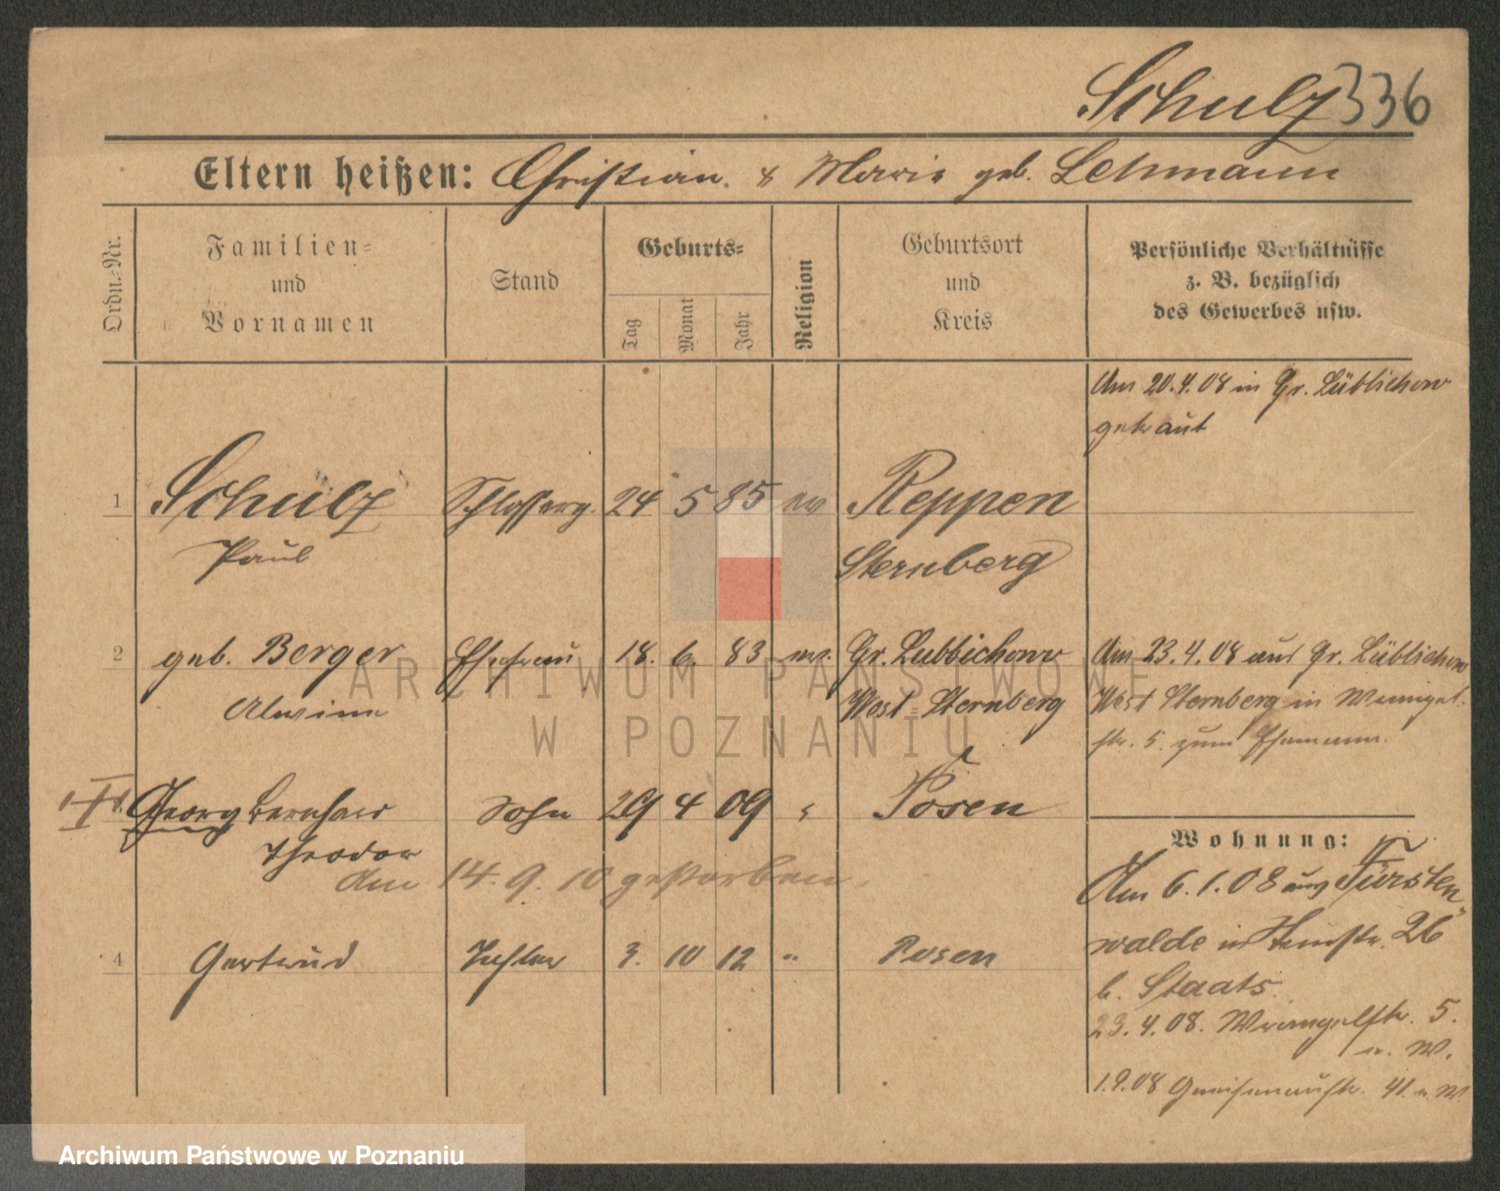 Schulz 336
Eltern heißen: Christian. & Marie geb. Lehmann
Ordn.-Nr.
Familien-
und
Vornamen
Stand
Geburts-
Tag
Monat
Jahr
Religion
Geburtsort
und
Kreis
Persönliche Verhältnisse
z. B. bezüglich
des Gewerbes usw.
Am 20.4.08 in Gr. Lübbichow
getraut
1 Schulz Schlosserg. 24 5 85 ev Reppen
Paul Sternberg
2 geb. Berger Ehefrau 18. 6. 83 ev. Gr. Lubbichow Am 23.4.08 aus Gr. Lübbichow
Alwine West-Sternberg West Sternberg in Wrangel-
str. 5. zum Ehemann.
Georg Bernhard Sohn 29 4 09 " Posen
Theodor
Am 14.9.10 gestorben.
4 Gertrud Tochter 3. 10 12 " Posen
Wohnung:
Am 6.1.08 aus Fürsten-
walde in 26
b. Staats.
23.4.08. Wrangelstr. 5.
u. W.
1.9.08 Gneisenaustr. 41. u. W
ARCHIWUM PAŃSTWOWE
W POZNANIU
Archiwum Państwowe w Poznaniu